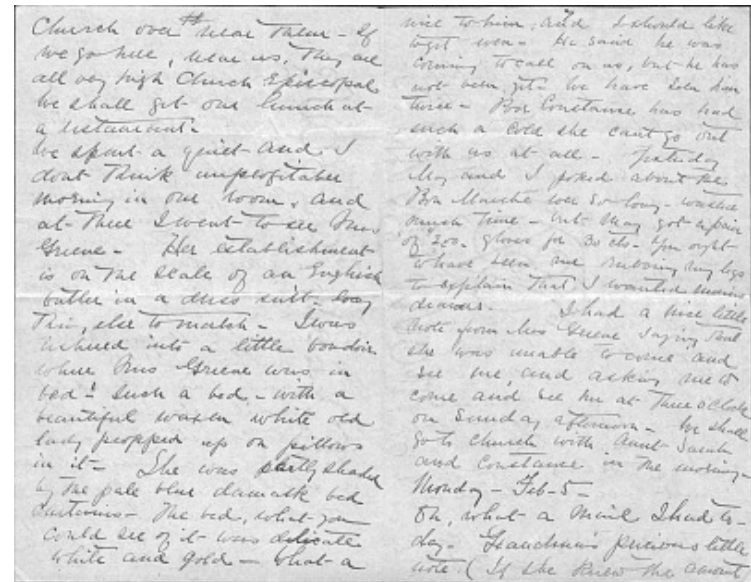 Church over near them - If
we go here, near us, they are
all very high Church Episcopal
We shall get our lunch at
a restaurant.
We spent a quiet and I
dont think unprofitable
morning in our room, and
at three I went to see Mrs
Greene - Her establishment
is on the scale of an English
butler in a dress suit -
thing else to match - I was
ushered into a little boudoir
where Mrs Greene was in
bed! Such a bed - with a
beautiful waxen white old
lady propped up on pillows
in it - She was partly shaded
by the pale blue damask bed
curtains - The bed, what you
could see of it was delicate
white and gold - what a
nice to him, and I should like
to get even - He said he was
coming to call on us, but he has
not been yet - We have seen him
twice - Poor Constance has had
such a cold she cant go out
with us at all - Yesterday
May and I poked about the
Bon Marche ever so long - wasted
much time - but May got a pair
of gloves for 30 cts - You ought
to have seen me rubbing my legs
to explain that I wanted
drawers. I had a nice little
note from Mrs Greene saying that
she was unable to come and
see me, and asking me to
come and see her at three o'clock
on Sunday afternoon - We shall
go to church with Aunt Sarah
and Constance in the morning -
Monday - Feb - 5 -
Oh, what a mail I had to-
day - Grandma's precious little
note (If she knew the amount